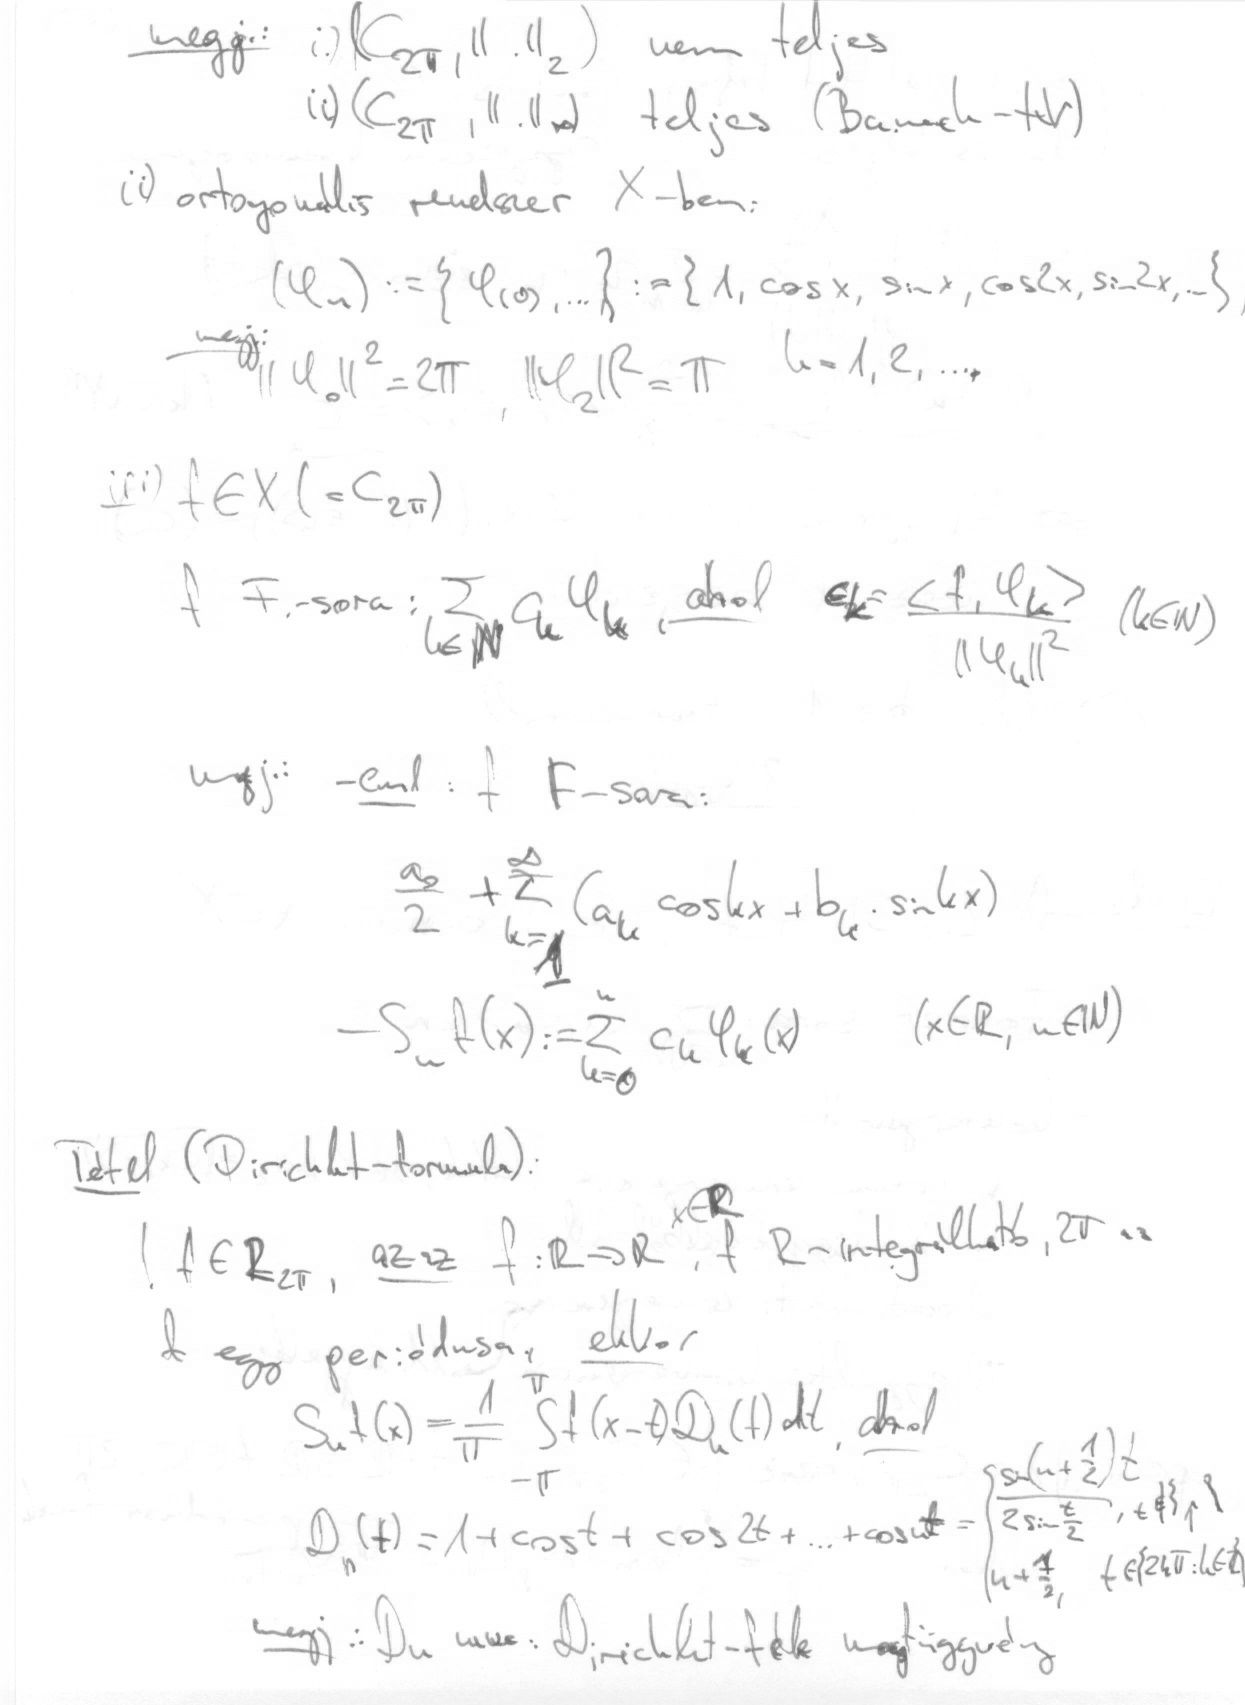 megj.: i.) (C_{2π}, ||.||_2) nem teljes
ii) (C_{2π}, ||.||_∞) teljes (Banach-tér)
ii) ortogonális rendszer X-ben:
(φ_n) := {φ_{(0)}, ...} := {1, cosx, sinx, cos2x, sin2x, ...},
megj.:
||φ_0||² = 2π, ||φ_2||² = π k=1,2,...
iii) f∈X (=C_{2π})
f F.-sora: Σ_{k∈N} c_k φ_k, ahol c_k = <f, φ_k> / ||φ_k||² (k∈N)
megj.: -eml: f F-sora:
a_0/2 + Σ_{k=1}^{∞} (a_k coskx + b_k · sinkx)
- S_n f(x) := Σ_{k=0}^{n} c_k φ_k(x) (x∈R, n∈N)
Tétel (Dirichlet-formula):
! f∈R_{2π}, azaz f: R→R, f R-integrálható, 2π az x∈R
f egy periódusa, ekkor
S_n f(x) = 1/π ∫_{-π}^{π} f(x-t) D_n(t) dt, ahol
D_n(t) = 1 + cost + cos2t + ... + cosnt = { sin(n+1/2)t / 2sin t/2, t∉{↑}
n+1/2, t∈{2kπ: k∈Z}
megj.: D_n neve: Dirichlet-féle magfüggvény